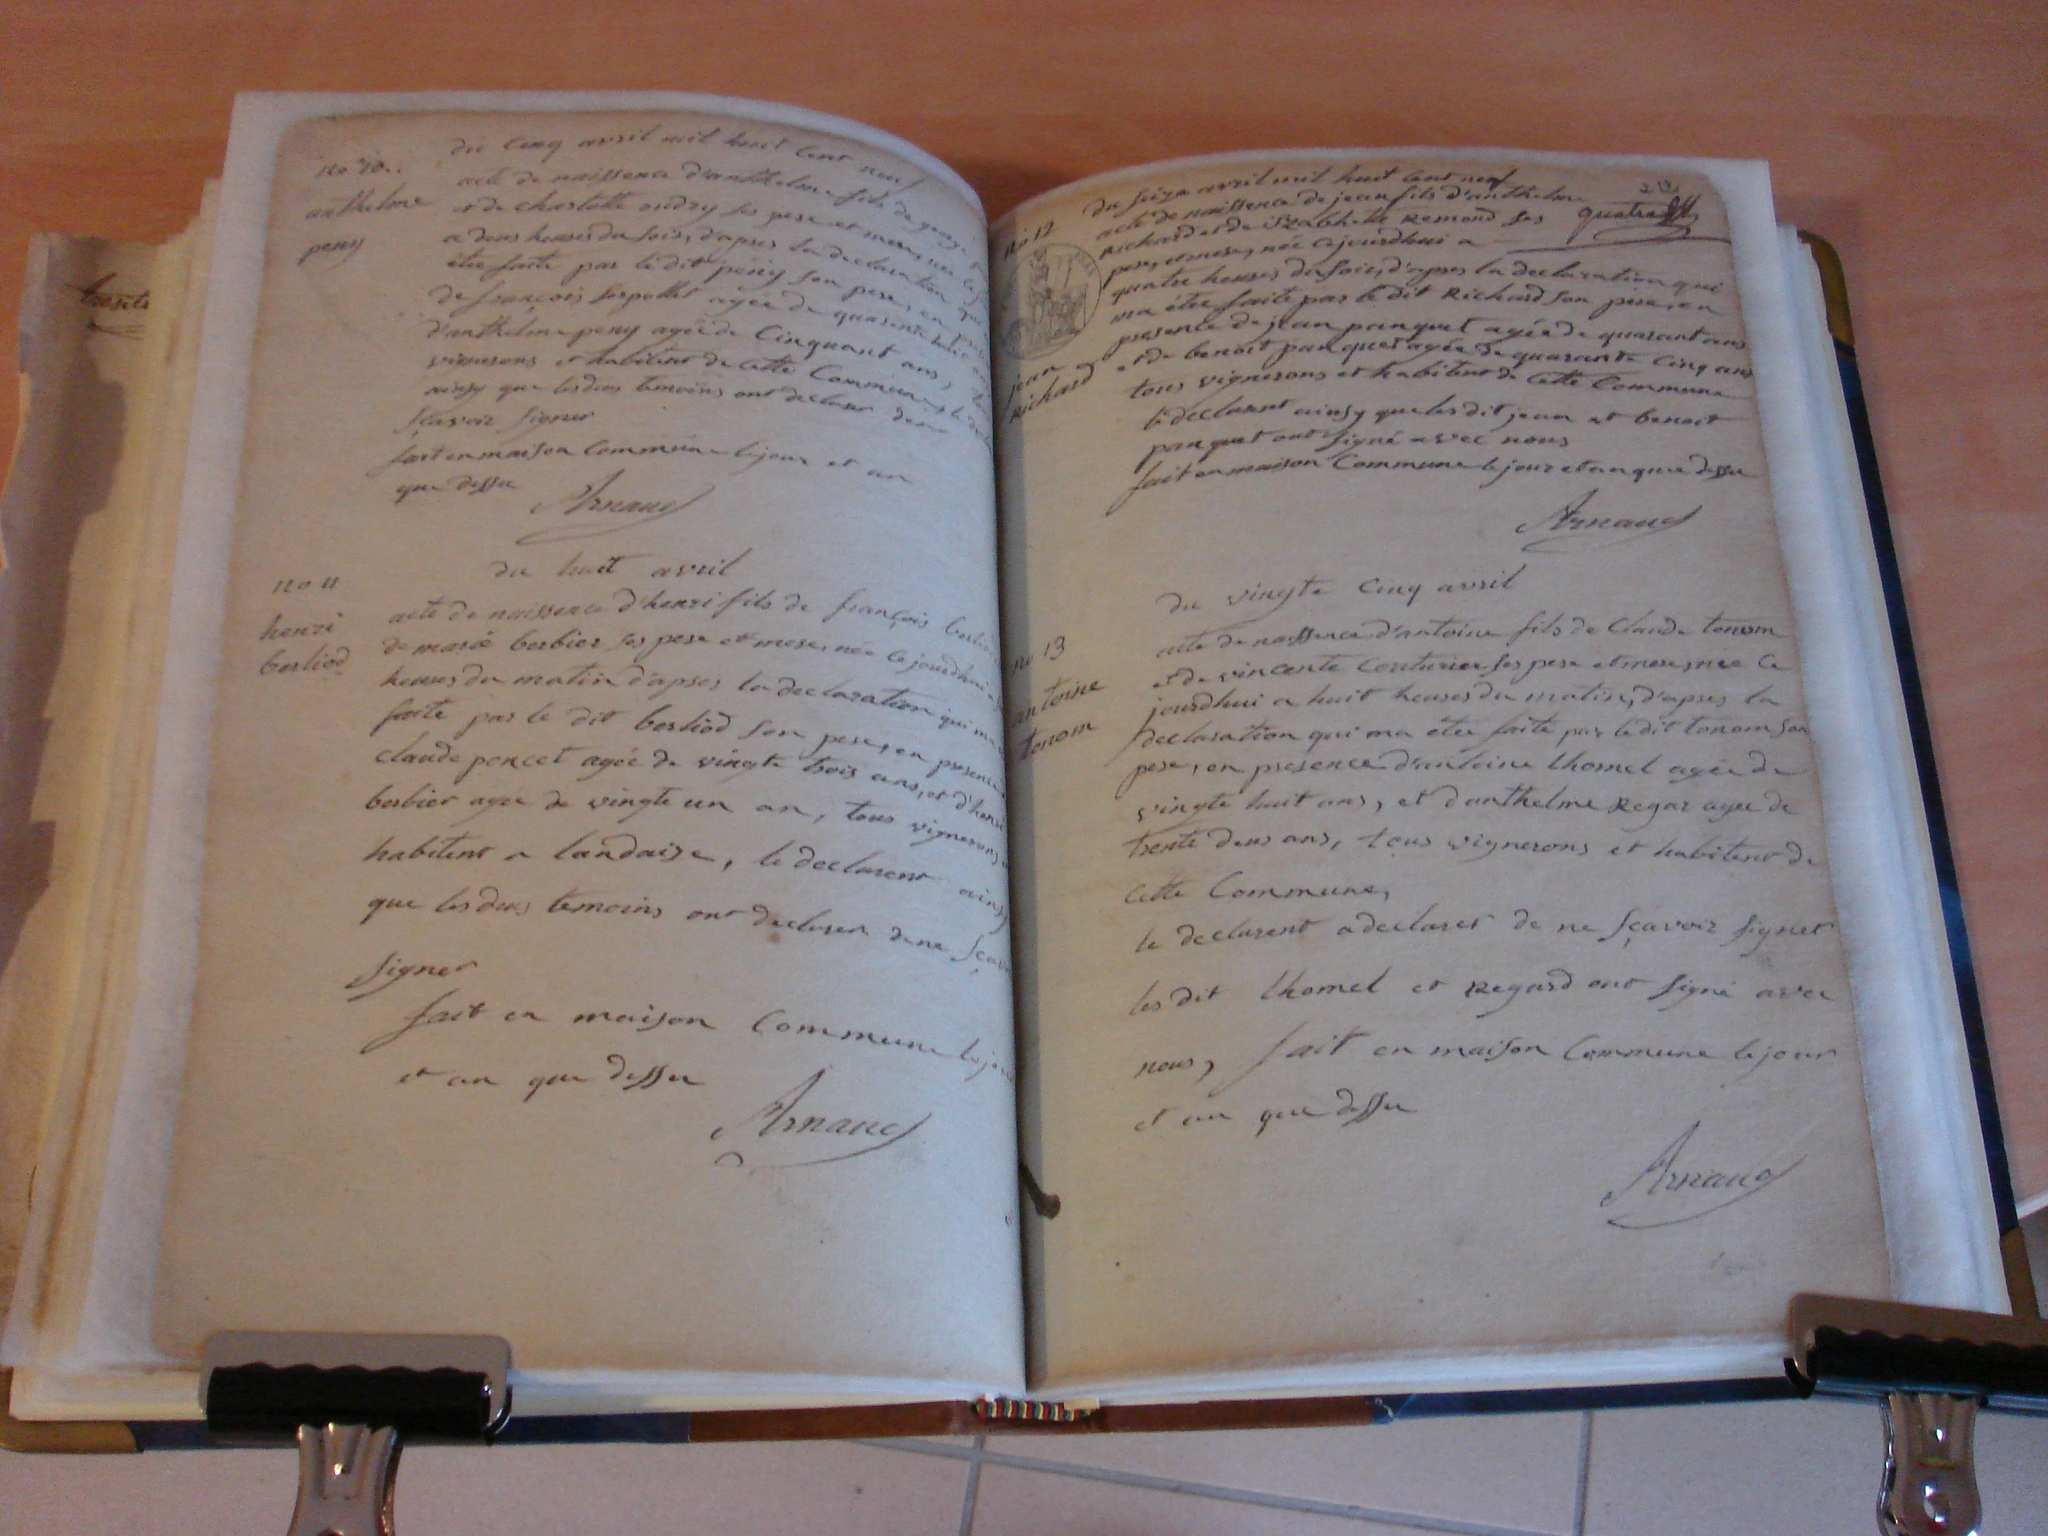 trosits
no 10..
anthelme
peny
du Cinq avril mil huit Cent neuf
acte de naissence d'anthelme fils de george
et de charlotte ondry ses pere et mere, née
a deus heures du soir, d'apres la declaration qui
être faite par le dit peny son pere, en
de françois agée de quarente
d'anthelme peny agée de Cinquant ans,
vignerons et habitent de Cette Commune, le
ainsy que lesdeus temoins ont declarer de ne
sçavoir signer
fait en maison Commune lejour et an
que dessu
Arnaud
no 11
henri
berliod
du huit avril
acte de naissence d'henri fils de françois berliod
de marie berbier ses pere et mere, née ce jourdhui a
heures du matin d'apres la declaration qui ma
faite par le dit berliod son pere, en presence
claude poncet agée de vingte trois ans, et d'henri
berbier agée de vingte un an, tous vignerons
habitent a landaise, le declarent ainsy
que lesdeus temoins ont declarer dene sçavoir
signer
fait en maison Commune lejour
et an que dessu
Arnaud
quatre
no 12
jean
Richard
du seize avril mil huit Cent neuf
acte de naissence de jean fils d'anthelme
Richard et de Remond ses
pere, et mere, née cejourdhui a
quatre heures du soir, d'apres la declaration qui
ma être faite par le dit Richard son pere, en
presence de jean panquet agée de quarant ans
et de benoit panquet agée de quarante Cinq ans
tous vignerons et habitent de Cette Commune
le declarent ainsy que les dit jean et benoit
panquet ont signé avec nous
fait en maison Commune le jour et an que dessu
Arnaud
no 13
antoine
tonom
du vingte Cinq avril
acte de naissence d'antoine fils de Claude tonom
et de vincente Couturier ses pere et mere, née Ce
jourdhui a huit heures du matin, d'apres la
declaration qui ma être faite par le dit tonom son
pere, en presence d'antoine thomel agée de
vingte huit ans, et d'anthelme Regar agée de
trente deus ans, tous vignerons et habitent de
Cette Commune,
le declarent a declarer de ne sçavoir signer
les dit thomel et Regard ont signé avec
nous, fait en maison Commune le jour
et an que dessu
Arnaud